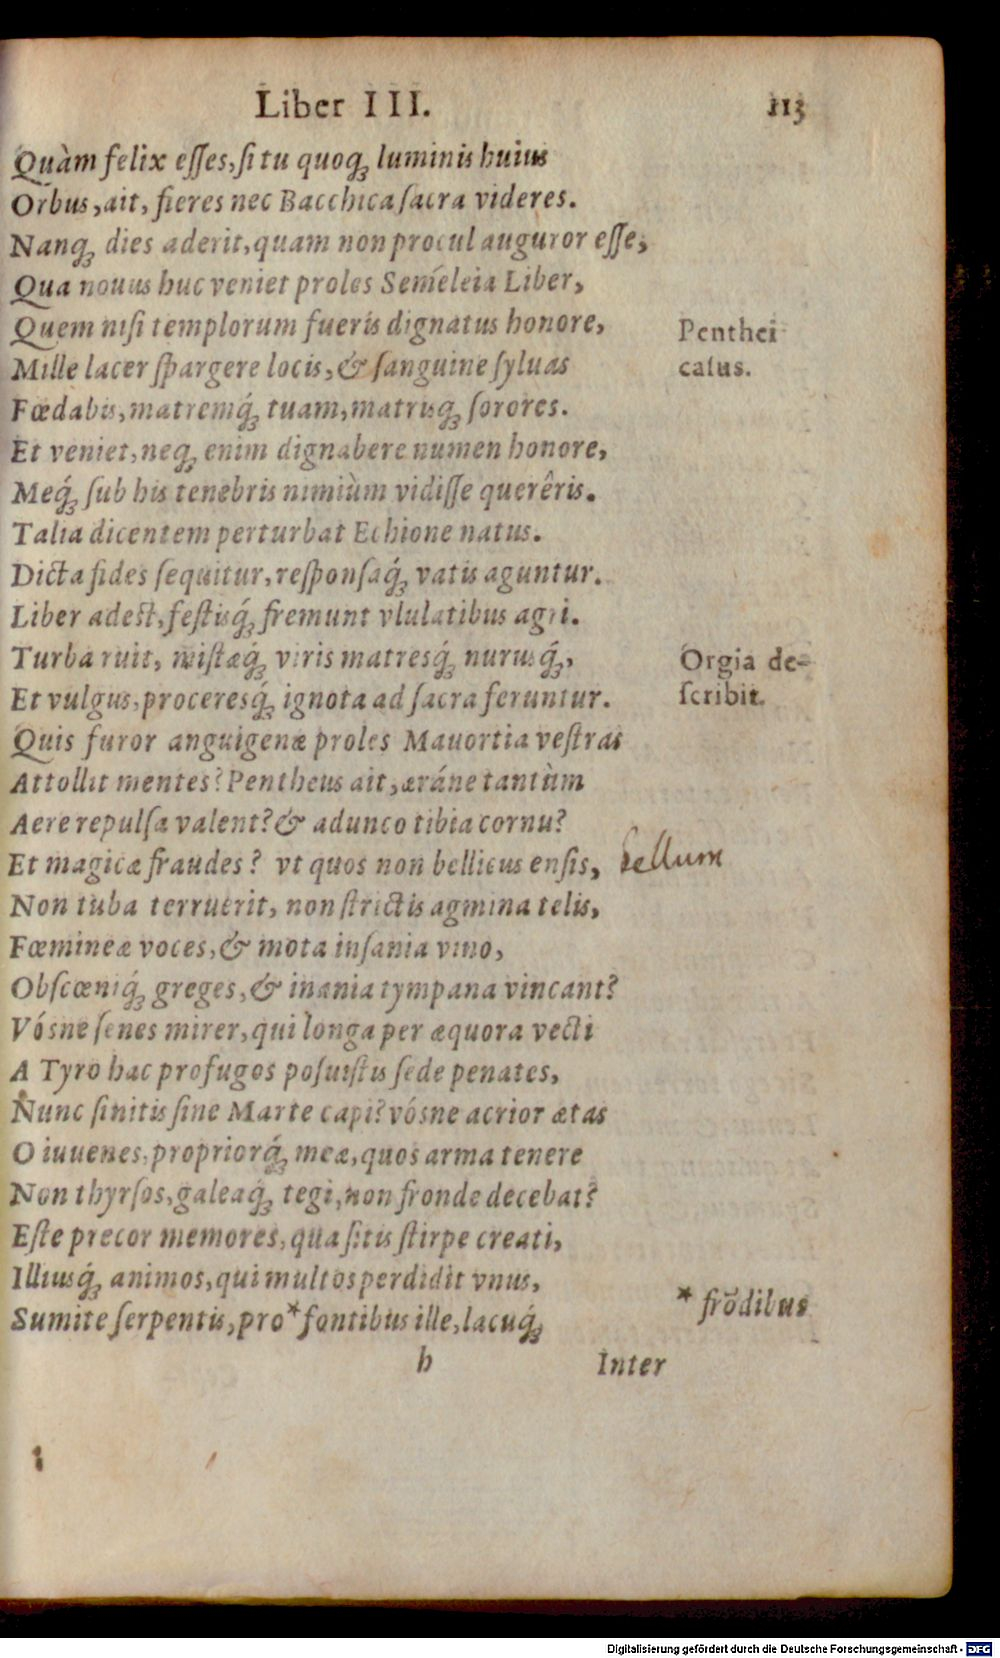 Liber III. 113
Quàm felix eſſes, ſi tu quoq́ꝫ luminis huius
Orbus, ait, fieres nec Bacchica ſacra videres.
Nanqꝫ dies aderit, quam non procul auguror eſſe,
Qua nouus huc veniet proles Seméleia Liber,
Quem niſi templorum fueris dignatus honore,
Penthei
Mille lacer ſpargere locis, & ſanguine ſyluas
caſus.
Fœdabis, matremq́ꝫ tuam, matrisqꝫ ſorores.
Et veniet, neqꝫ enim dignabere numen honore,
Meq́ꝫ ſub his tenebris nimiùm vidiſſe querêris.
Talia dicentem perturbat Echione natus.
Dicta fides ſequitur, reſponſaq́ꝫ vatis aguntur.
Liber adest, feſtisq́ꝫ fremunt vlulatibus agri.
Turba ruit, miſtæq́ꝫ viris matresq́ꝫ nurusq́ꝫ,
Orgia de-
Et vulgus, proceresq́ꝫ ignota ad ſacra feruntur.
ſcribit.
Quis furor anguigenæ proles Mauortia veſtras
Attollit mentes? Pentheus ait, æráne tantùm
Aere repulſa valent? & adunco tibia cornu?
Et magicæ fraudes? vt quos non bellicus enſis,
bellum
Non tuba terruerit, non ſtrictis agmina telis,
Fœmineæ voces, & mota inſania vino,
Obſcœniq́ꝫ greges, & inania tympana vincant?
Vósne ſenes mirer, qui longa per æquora vecti
A Tyro hac profugos poſuiſtis ſede penates,
Nunc ſinitis ſine Marte capi? vósne acrior ætas
O iuuenes, propriorq́ꝫ meæ, quos arma tenere
Non thyrſos, galeaqꝫ tegi, non fronde decebat?
Eſte precor memores, qua ſitis ſtirpe creati,
Illiusq́ꝫ animos, qui multos perdidit vnus,
Sumite ſerpentis, pro * fontibus ille, lacuq́ꝫ
* frōdibus
h Inter
Digitalisierung gefördert durch die Deutsche Forschungsgemeinschaft - DFG